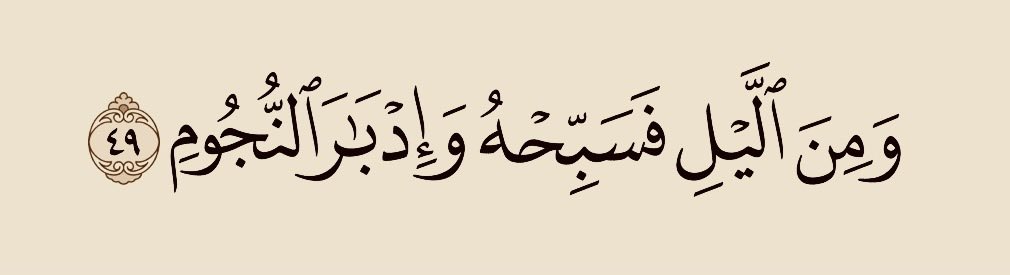 وَمِنَ ٱلَّيۡلِ فَسَبِّحۡهُ وَإِدۡبَٰرَ ٱلنُّجُومِ ٤٩